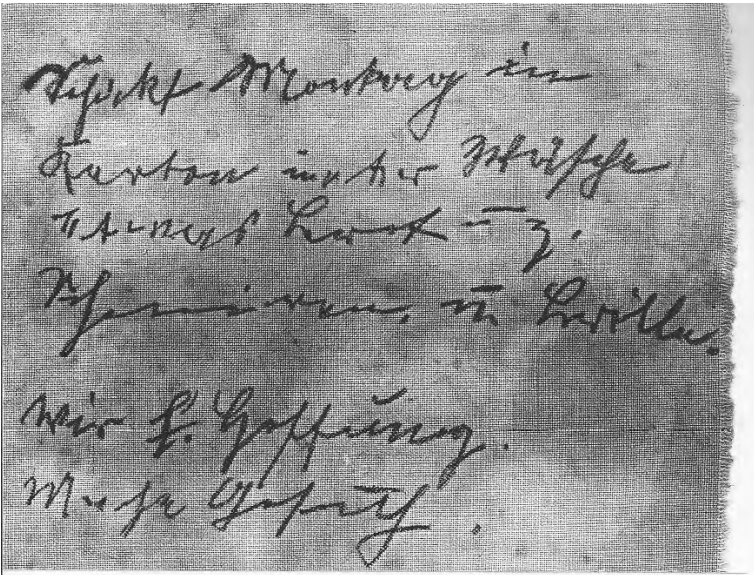 Schickt Montag im
Karton unter Wäsche
etwas Brot u z.
Schmieren, u Brille.
Wir h. Hoffnung.
Mache Gesuch.